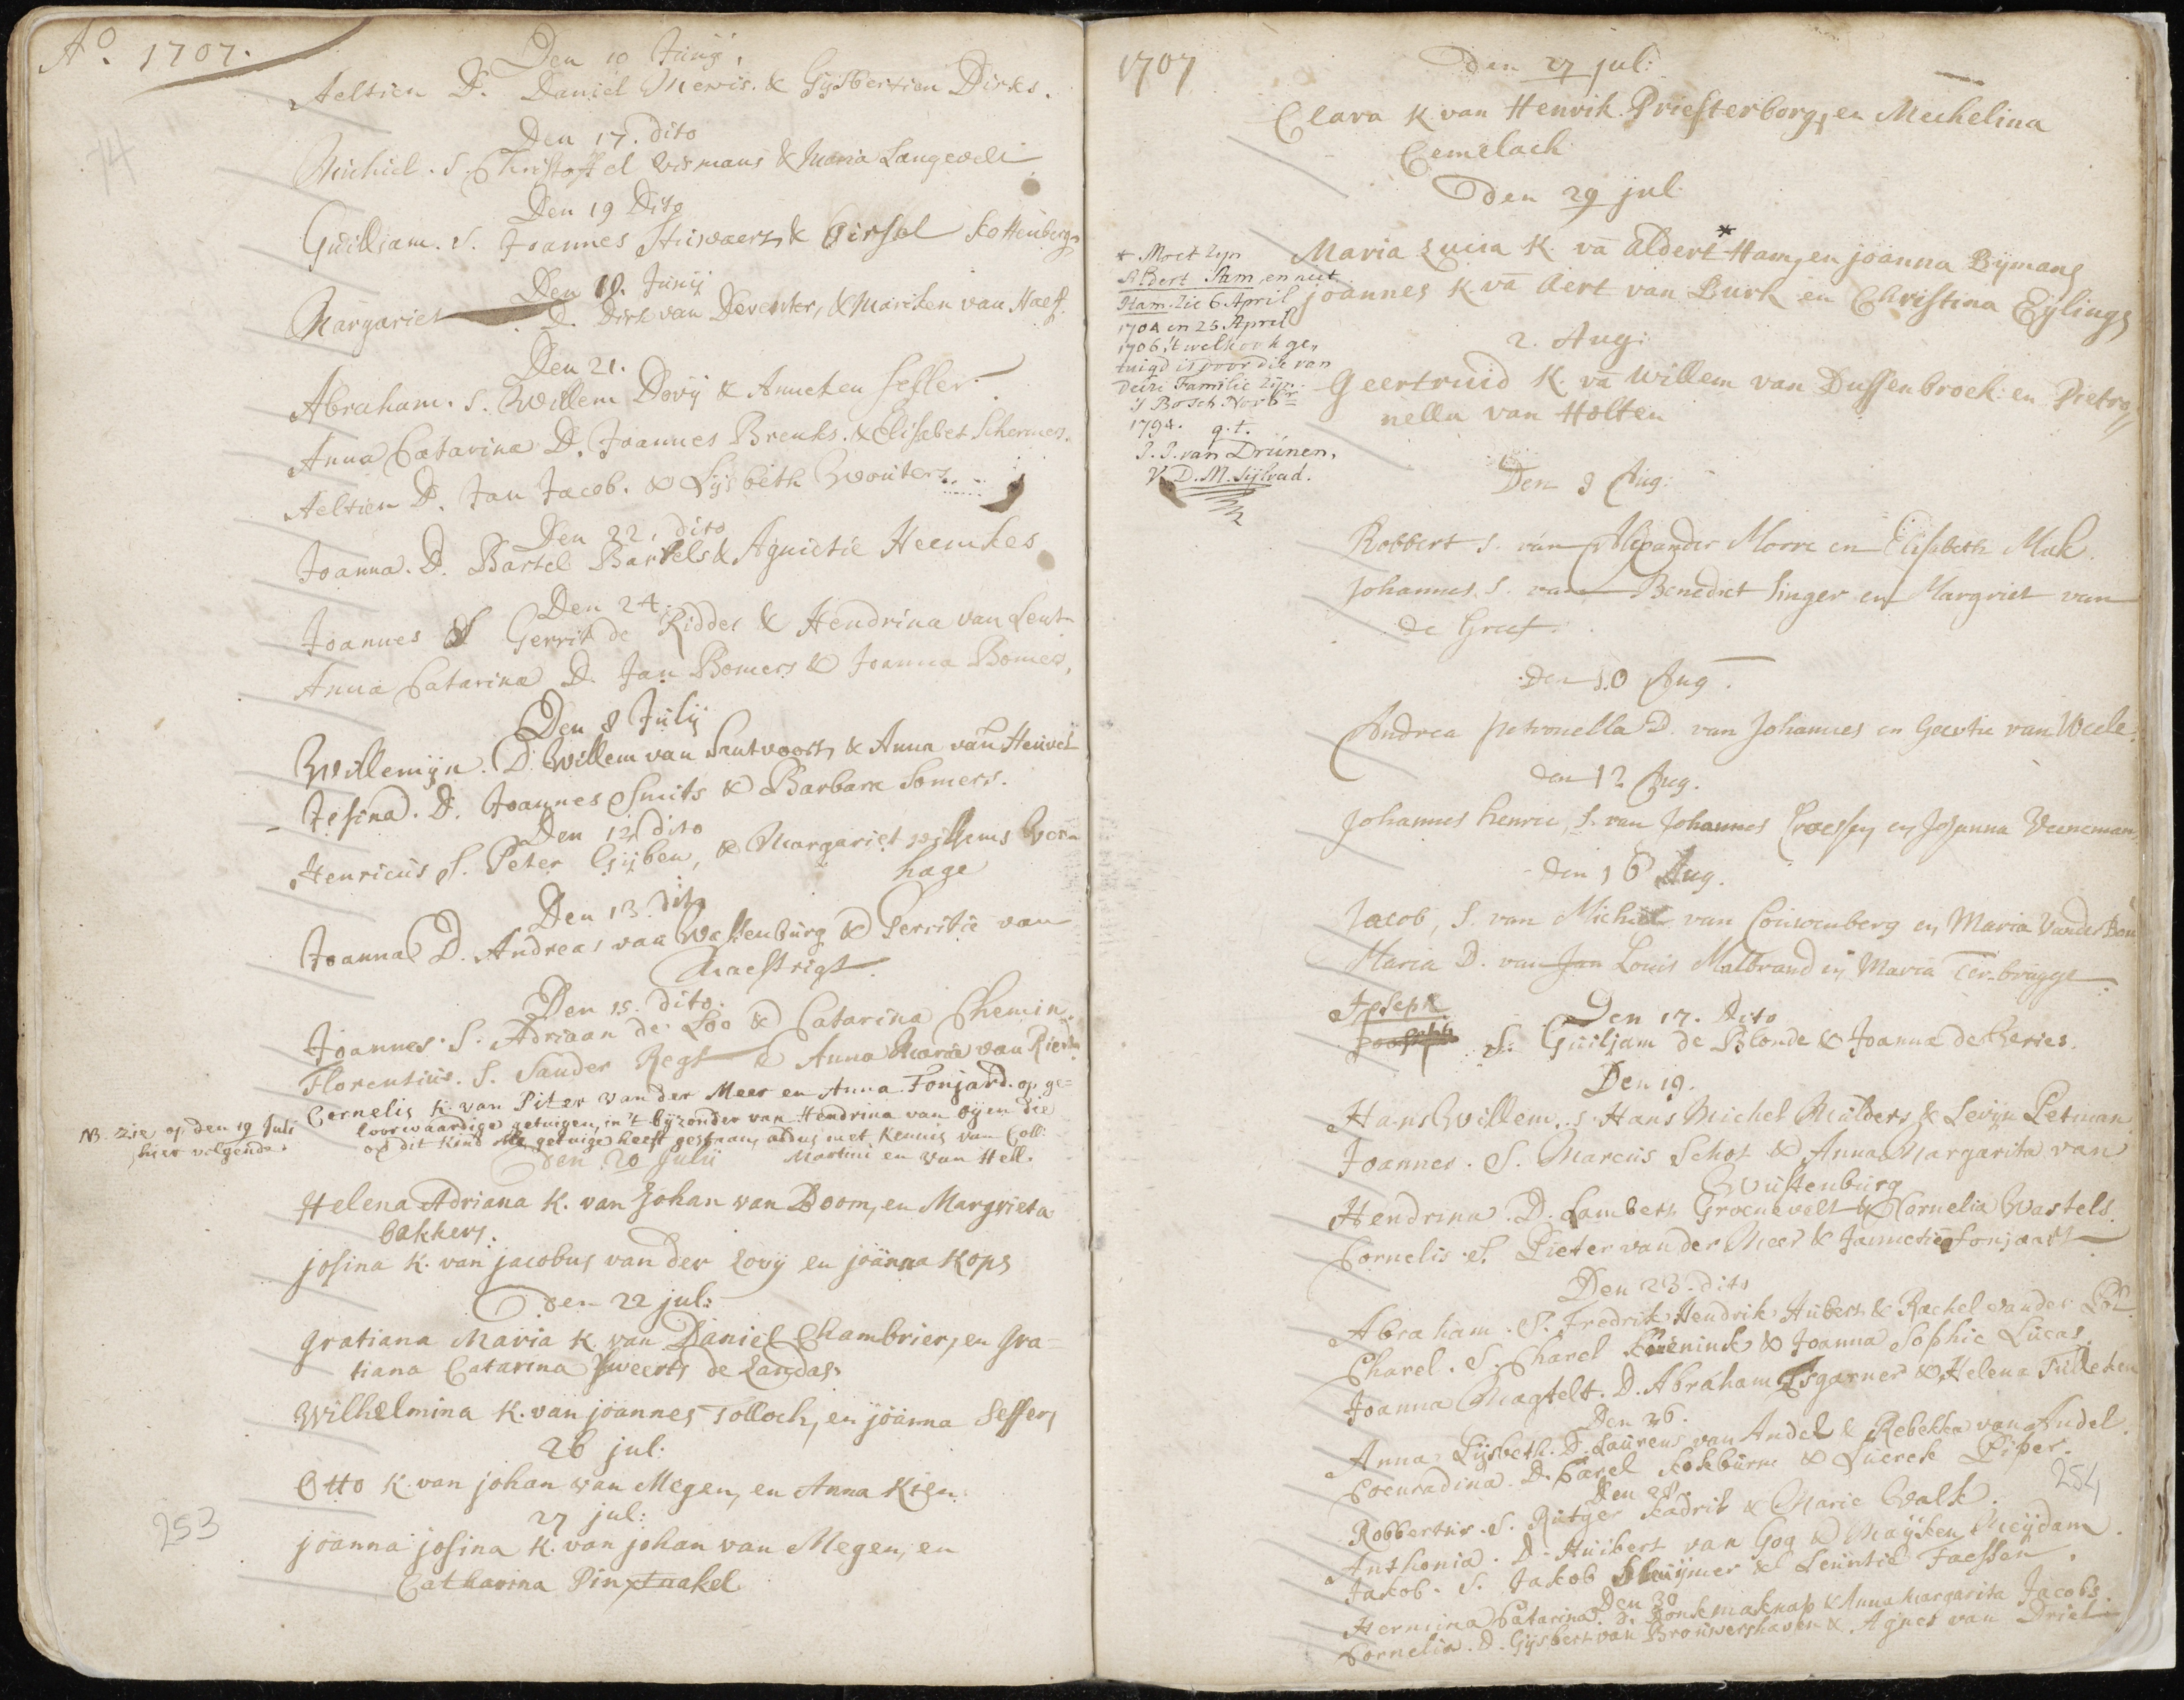 Ao. 1707.
Den 10 Junij.
Aeltien D. Daniel Mewis. & Gijsbertien Dirks.
Den 17. dito
Michiel. S. Christoffel Wismans & Maria Langevelt
Den 19 Dito
Guilliam. S. Joannes Stuwaerts & Girsel Kottenbergs
Den 19. Junij
Margariet D. Dirk van Deventer, & Mariken van Haef.
Den 21.
Abraham. S. Willem Dovij & Anneken Sesler.
Anna Catarina D. Joannes Brenks. & Elisebet Schermers.
Aeltien D. Jan Jacob. & Lijsbeth Wouters.
Den 22. dito
Joanna. D. Bartel Bartels & Agnietie Heemkes
Den 24.
Joannes S Gerrit de Ridder & Hendrina van Lent
Anna Catarina D. Jan Bomers & Joanna Bomers,
Den 8 Julij
Willemijn. D. Willem van Santvoort, & Anna van Heuvel
Jesina. D. Joannes Smits & Barbara Somers.
Den 12 dito
Henricus S. Peter Gijben, & Margariet Willems Vern
hage
Den 13. dito
Joanna D. Andreas van Wassenburg & Gerritie van
Maestrigt.
Den 15. dito.
Joannes. S. Adriaan de Loo & Catarina Chemin.
Florentius. S. Sander Regt & Anna Maria van Rierden
Cornelis K. van Piter van der Meer en Anna Fonjard. op ge=
loorwaardige getuigen, in 't bijzonder van Hendrina van Oijen die
op dit Kind als getuige heeft gestaan, aldus met Kennis van Coll:
Martini en van Hell.
NB. Zie op den 19 Juli
hier volgende.
Den 20 Julij
Helena Adriana K. van Johan van Boom, en Margrieta
bakkers.
josina K. van jacobus van der Looij en joanna Kops
Den 22 jul:
Gratiana Maria K. van Daniel Chambrier, en Gra=
tiana Catarina Sweerts de Landas
Wilhelmina K. van joannes Tolloch, en joanna Seffers
26 jul:
Otto K. van johan van Megen, en Anna Kien.
27 jul:
joanna josina K. van johan van Megen, en
Catharina Pinxtaakel
253
1707
Den 27 jul:
Clara K. van Henrik Priesterborg, en Mechelina
Cemelack
Den 29 jul
Maria Lucia K. va Aldert * Ham, en joanna Bijmans
joannes K. va Aert van Burk en Christina Eijlings
* Moet zijn
Albert Stam, en niet
Ham. Zie 6 April
1704 en 25 April
1706; 't welk ook ge,
tuigd is door die van
deze Familie zijn.
's Bosch Novbr.
1794. q.t.
J. J. van Drunen.
V. D. M. Sijlvad.
2. Aug:
Geertruid K. va Willem van Dussenbroek: en Pietro
nella van Holten
Den 9 Aug:
Robbert S. van Alexander Morre en Elisabeth Mak.
Johannes S. van Benedict Singer en Margriet van
de Greef.
Den 10 Aug.
Andrea Petronella D. van Johannes en Geertie van Weele.
den 12 Aug.
Johannes Henric, S. van Johannes Croessen en Josanna Veeneman
den 16 Aug.
Jacob, S. van Michiel van Couwenberg en Maria Vander Ben
Maria D. van Jan Louis Malbrand en Maria Ter-brugge
Joseph
Den 17. Dito
S. Guiljam de Blonde & Joanna de Cheries.
Den 19.
Hans Willem. S. Hans Michel Mulders & Levijn Petman
Joannes. S. Marcus Schot & Anna Margarita van
Wustenburg
Hendrina. D. Lambert Groenevelt & Cornelia Wastels.
Cornelis. S. Pieter van der Meer & Jannetie Fonjaart
Den 23. dito
Abraham. S. Fredrik Hendrik Hubert & Rachel vander Pol
Charel. S. Charel Keuenink & Joanna Sophie Lucas.
Joanna Magtelt. D. Abraham Esgarner & Helena Tulleken
Den 26.
Anna Lijsbeth. D. Laurens van Andel & Rebekka van Andel.
Coenradina. D. Carel Kokburne & Lucrek Piper.
Den 28.
Robbertus. S. Rutger Kadrik & Marie Valk.
Anthonia. D. Huibert van Gog & Maijken Meijdam.
Jakob. S. Jakob Sluijmer & Leuntie Faessen.
Den 30
Hermina Catarina. D. Konk Maknap & Anna Margarita Jacobs.
Cornelia. D. Gijsbert van Brouwershaven & Agnes van Driel
254